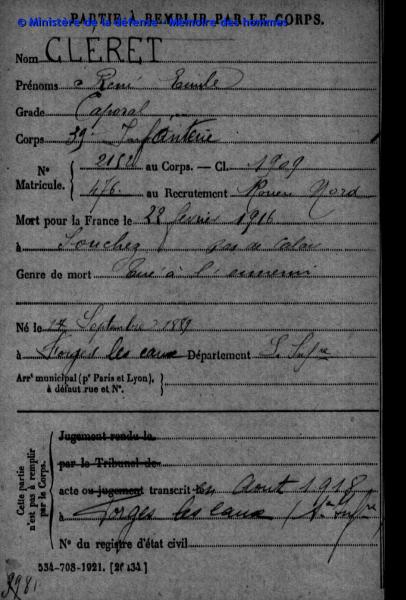 © Ministère de la défense - Mémoire des hommes
PARTIE À REMPLIR PAR LE CORPS.
Nom CLÉRET
Prénoms René Emile
Grade Caporal
Corps 39e Infanterie
N° Matricule. { 2152 au Corps. — Cl. 1909
476 au Recrutement Rouen Nord
Mort pour la France le 22 février 1916
à Souchez pas de Calais
Genre de mort Tué à l'ennemi
Né le 17 Septembre 1889
à Forges les eaux Département S. Infre
Arrt municipal (pr Paris et Lyon), à défaut rue et N°. {
Cette partie n'est pas à remplir par le Corps.
Jugement rendu le
par le Tribunal de
acte ou jugement transcrit le Aout 1918
à Forges les eaux (Se Infre)
N° du registre d'état civil
534-708-1921. [26434]